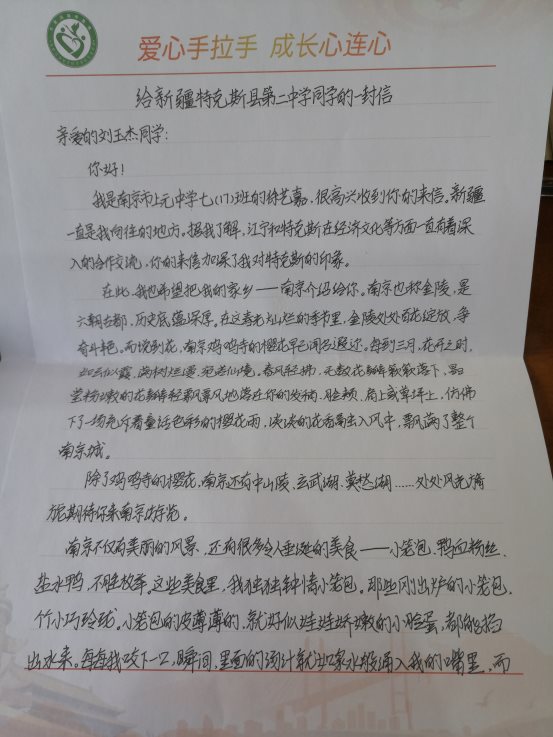 爱心手拉手 成长心连心
给新疆特克斯县第二中学同学的一封信
亲爱的刘玉杰同学：
你好！
我是南京市上元中学七(17)班的徐艺嘉，很高兴收到你的来信。新疆
一直是我向往的地方。据我了解，江宁和特克斯在经济文化等方面一直有着深
入的合作交流，你的来信加深了我对特克斯的印象。
在此，我也希望把我的家乡——南京介绍给你。南京也称金陵，是
六朝古都，历史底蕴深厚。在这春光灿烂的季节里，金陵处处百花绽放，争
奇斗艳。而说到花，南京鸡鸣寺的樱花早已闻名遐迩。每到三月，花开之时，
如云似霞，满树烂漫，宛若仙境。春风轻拂，无数花瓣簌簌落下，
莹粉嫩的花瓣轻飘飘地落在你的发梢、脸颊、肩上或草坪上，仿佛
下了一场充斥着童话色彩的樱花雨，淡淡的花香融入风中，飘满了整个
南京城。
除了鸡鸣寺的樱花，南京还有中山陵，玄武湖，莫愁湖……处处风光旖
旎，期待你来南京游览。
南京不仅有美丽的风景，还有很多令人垂涎的美食——小笼包，鸭血粉丝，
盐水鸭，不胜枚举。这些美食里，我独独钟情小笼包。那些刚出炉的小笼包，
个小巧玲珑。小笼包的皮薄薄的，就好似娃娃娇嫩的小脸蛋，都能掐
出水来。每每我咬下一口，瞬间，里面的汤汁就如家水般涌入我的嘴里，而